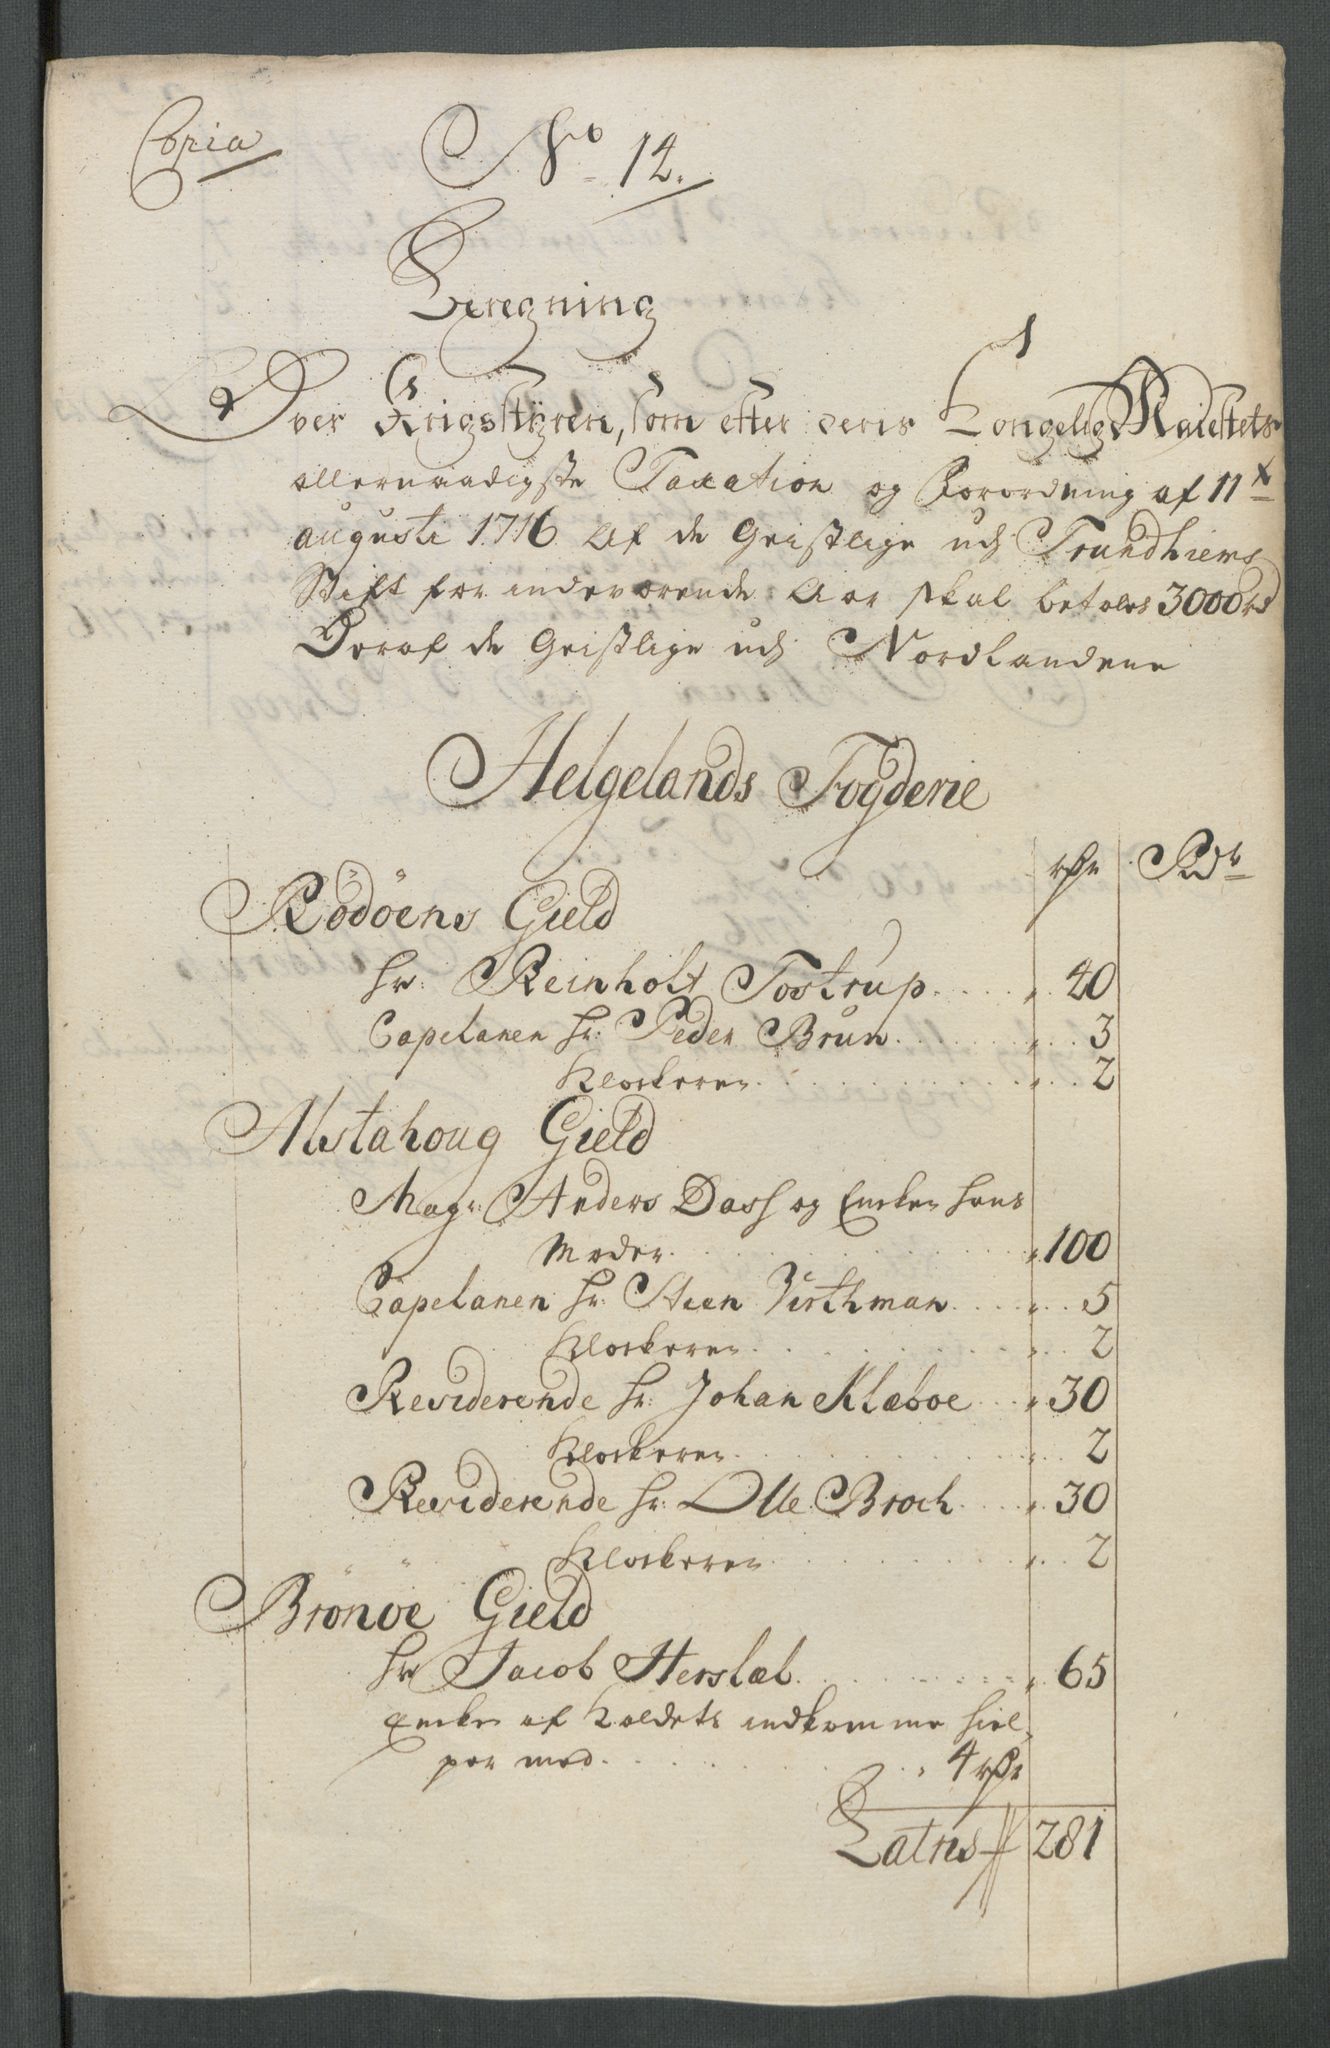 Copia
No 12.
Beregning
Over Krigsstyren, som efter deris Kongelig Maiestets
allernaadigste Taxation og Forordning af 11
augusti 1716 Af de Geistlige udj Trundhiems
Stift for indeværende Aar skal betales 3000 rd
Deraf de Geistlige udj Nordlandene
Helgelands Fogderie
rdr Rdr
Rödöens Gield
hr: Reinholt Tostrup 40
Capelanen hr: Peder Brun 3
Klockeren 2
Alstahoug Gield
Magr: Anders Dass og Encken hans
Moder 100
Capelanen hr: Steen Virthman 5
Klockeren 2
Residerende hr: Johan Klæboe 30
Klockeren 2
Residerende hr: Olle Broch 30
Klockeren 2
Brönöe Gield
hr Jacob Herslæb 65
Encken af Kaldets indkomme hiel-
per med 4 rdr
Latus 281